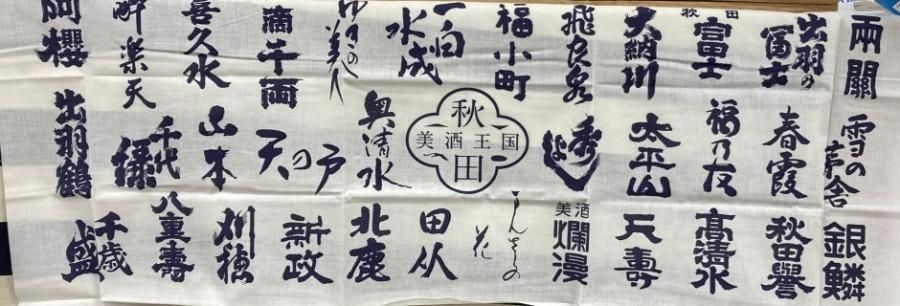 兩關
雪の茅舎
銀鱗
出羽の冨士
春霞
秋田譽
秋田富士
福乃友
高清水
大納川
太平山
天壽
飛良泉
秀よし
美酒爛漫
福小町
秋田
美酒王国
まんさくの花
一白水成
田从
奥清水
北鹿
ゆきの美人
天の戸
新政
滴千両
山本
刈穂
喜久水
千代緑
八重壽
酔楽天
千歳盛
阿櫻
出羽鶴